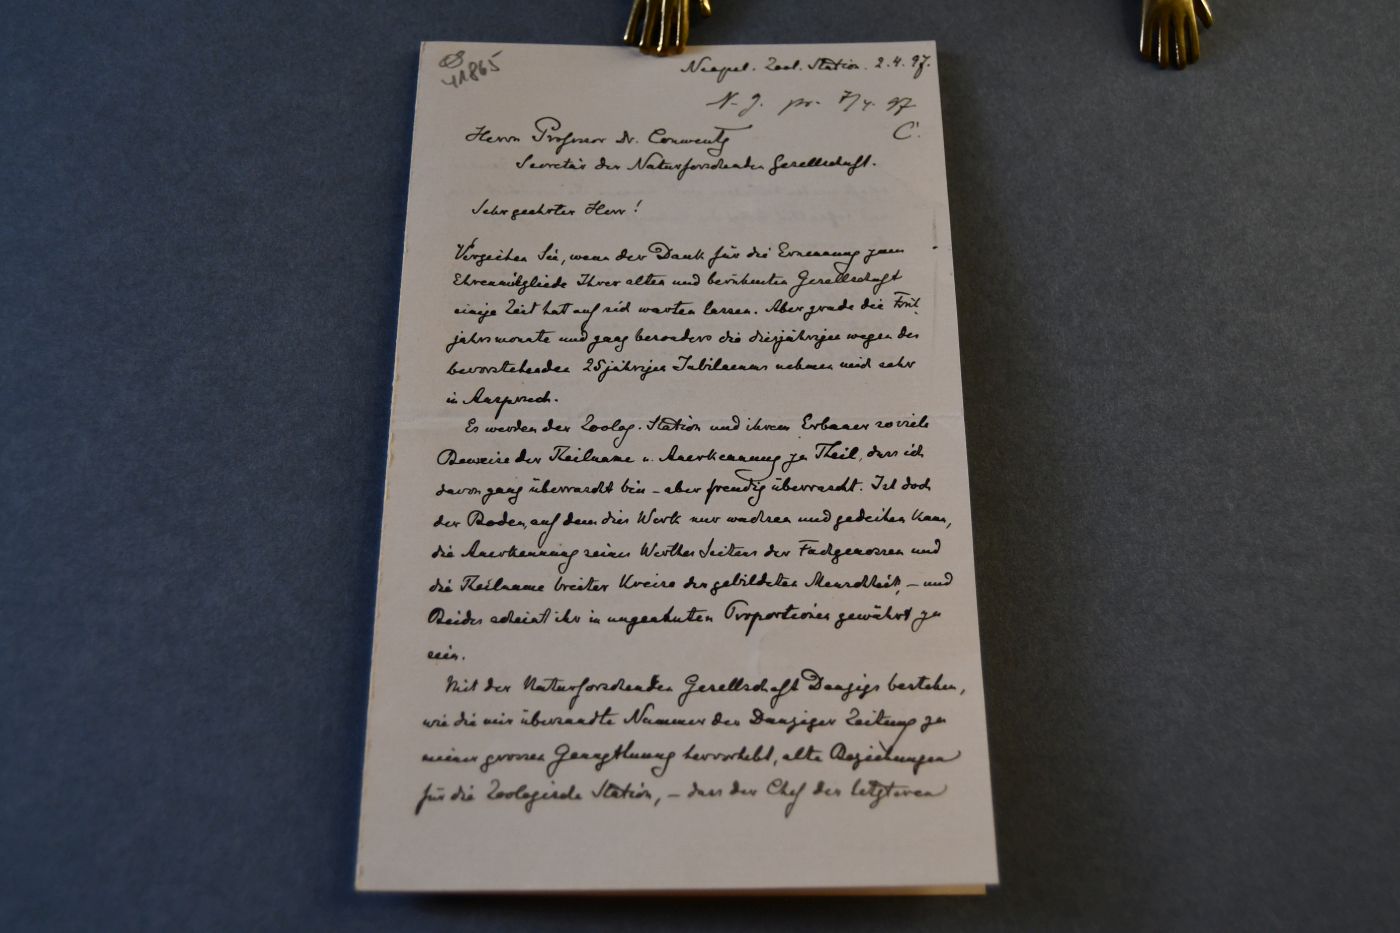 41865
Neapel. Zool. Station. 2.4.97.
N. G. pr. 7/4. 97
C.
Herrn Professor Dr. Conwentz
Secretär der Naturforschenden Gesellschaft.
Sehr geehrter Herr!
Verzeihen Sie, wenn der Dank für die Ernennung zum
Ehrenmitgliede Ihrer alten und berühmten Gesellschaft
einige Zeit hat auf sich warten lassen. Aber grade die Früh-
jahrsmonate und ganz besonders die diesjährigen wegen des
bevorstehenden 25jährigen Jubilaeums nehmen mich sehr
in Anspruch.
Es werden der Zoolog. Station und ihrem Erbauer so viele
Beweise der Theilname u. Anerkennung zu Theil, dass ich
davon ganz überrascht bin – aber freudig überrascht. Ist doch
der Boden, auf dem dies Werk nur wachsen und gedeihen kann,
die Anerkennung seines Werthes Seitens der Fachgenossen und
die Theilname breiter Kreise der gebildeten Menschheit, – und
Beides scheint ihr in ungeahnten Proportionen gewährt zu
sein.
Mit der Naturforschenden Gesellschaft Danzigs bestehen,
wie die mir übersandte Nummer der Danziger Zeitung zu
meiner grossen Genugthuung hervorhebt, alte Beziehungen
für die Zoologische Station, – dass der Chef der letzteren